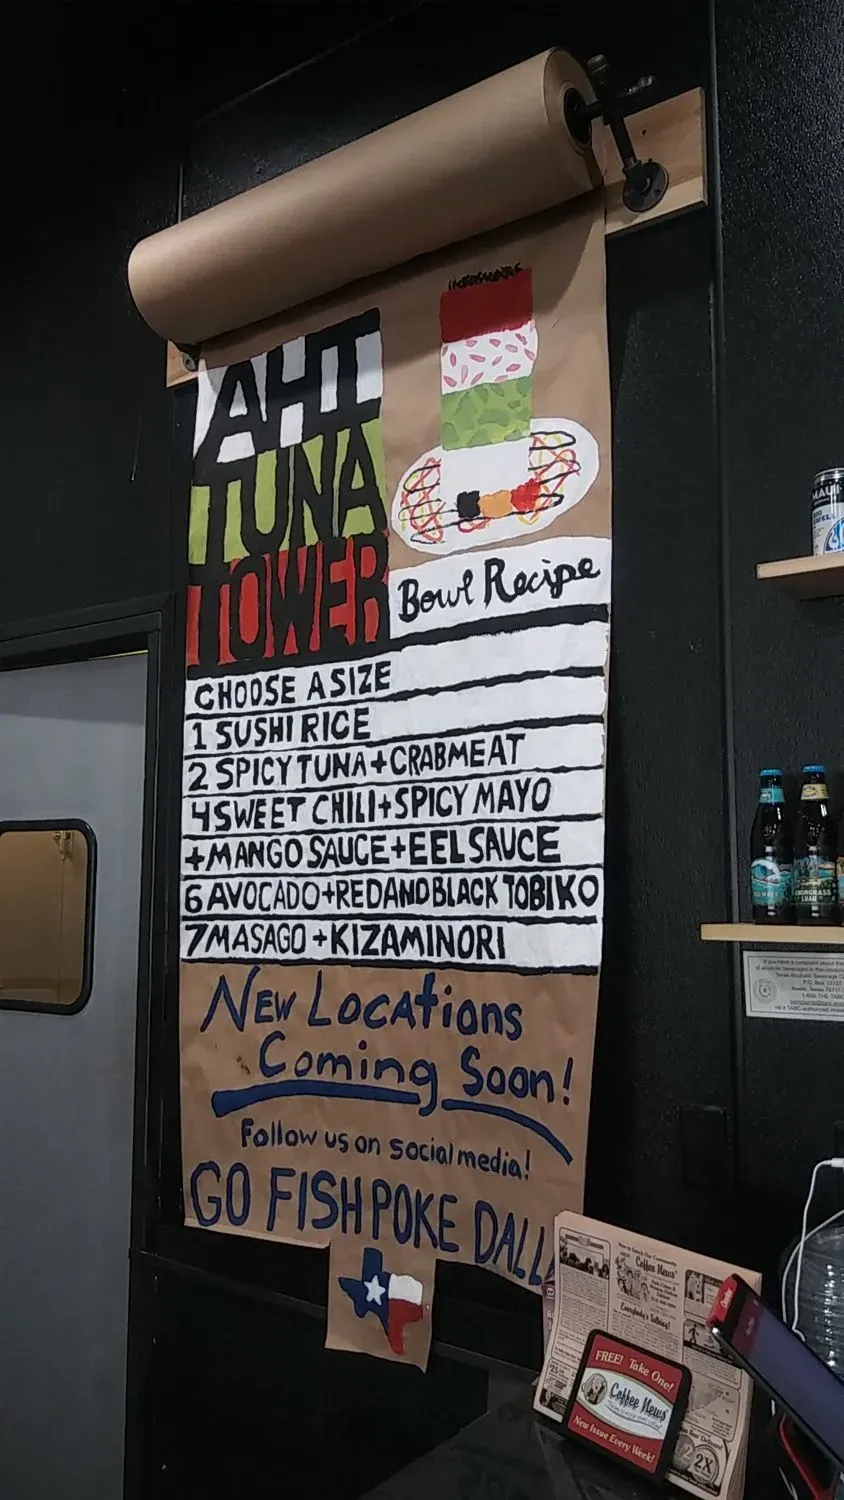 AHI
TUNA
TOWER
Bowl Recipe
CHOOSE A SIZE
1 SUSHI RICE
2 SPICY TUNA+CRABMEAT
4 SWEET CHILI+SPICY MAYO
+MANGO SAUCE+EEL SAUCE
6 AVOCADO+RED AND BLACK TOBIKO
7 MASAGO+KIZAMI NORI
New Locations
Coming Soon!
Follow us on social media!
GO FISH POKE DALL
MAUI
Coffee News
Everybody's Talking!
FREE! Take One!
Coffee News
New Issue Every Week!
2X